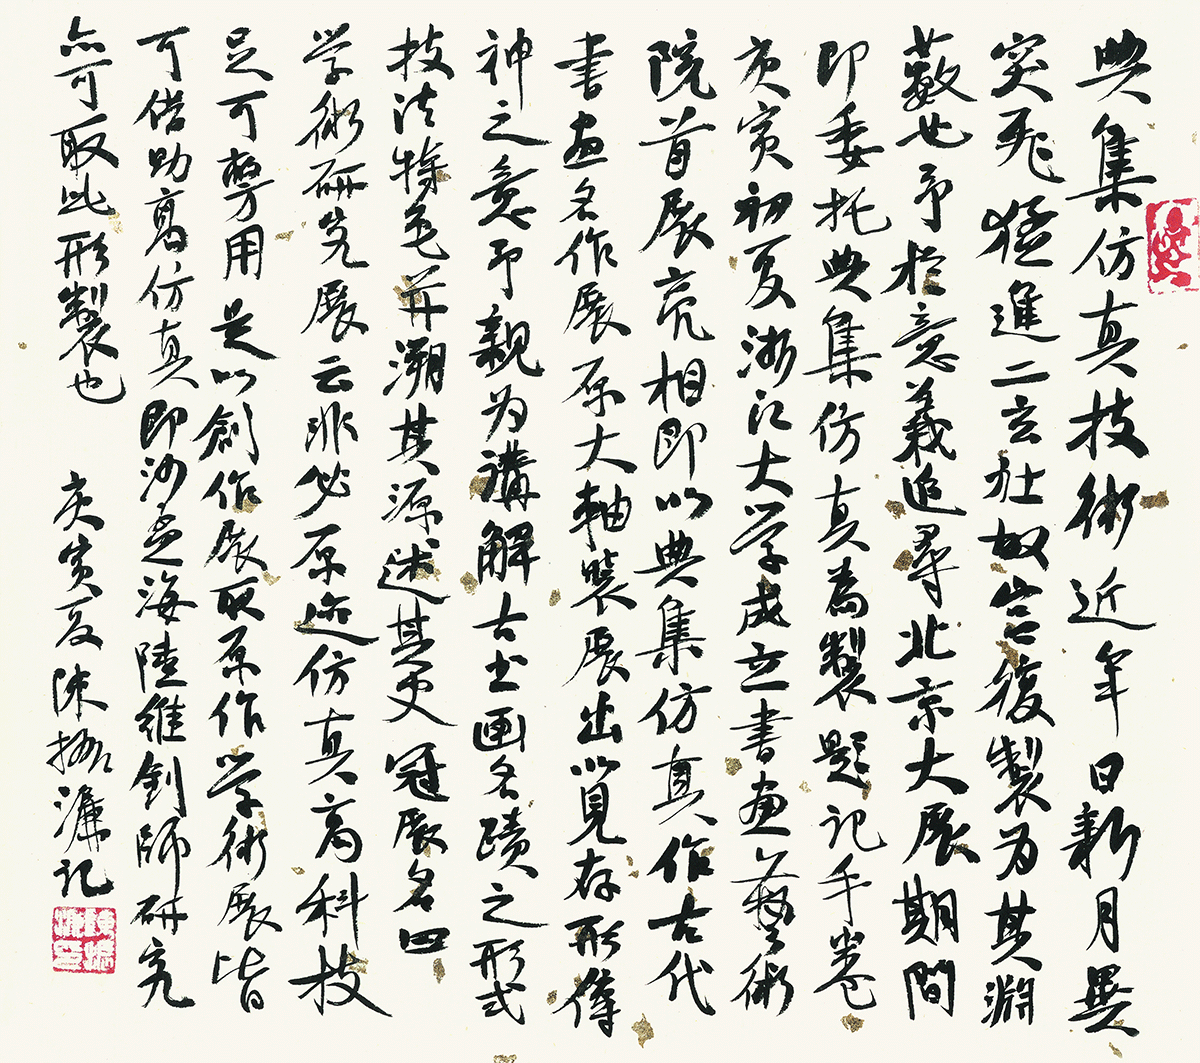 典集仿真技術近年日新月異
突飛猛進二玄社故宫復製为其淵
藪也予於意義追尋北京大展期間
即委托典集仿真為製題記手卷
庚寅初夏浙江大学成立書画藝術
院首展亮相即以典集仿真作古代
書画名作展原大軸裝展出以見存形傳
神之意予親为講解古书画名蹟之形式
技法特色并溯其源述其史冠展名曰
学術研究展云非必原迹仿真高科技
足可擎用是以創作展取原作学術展皆
可借助高仿真即沙孟海陸維釗師研究
亦可取此形製也
庚寅夏陳振濂记